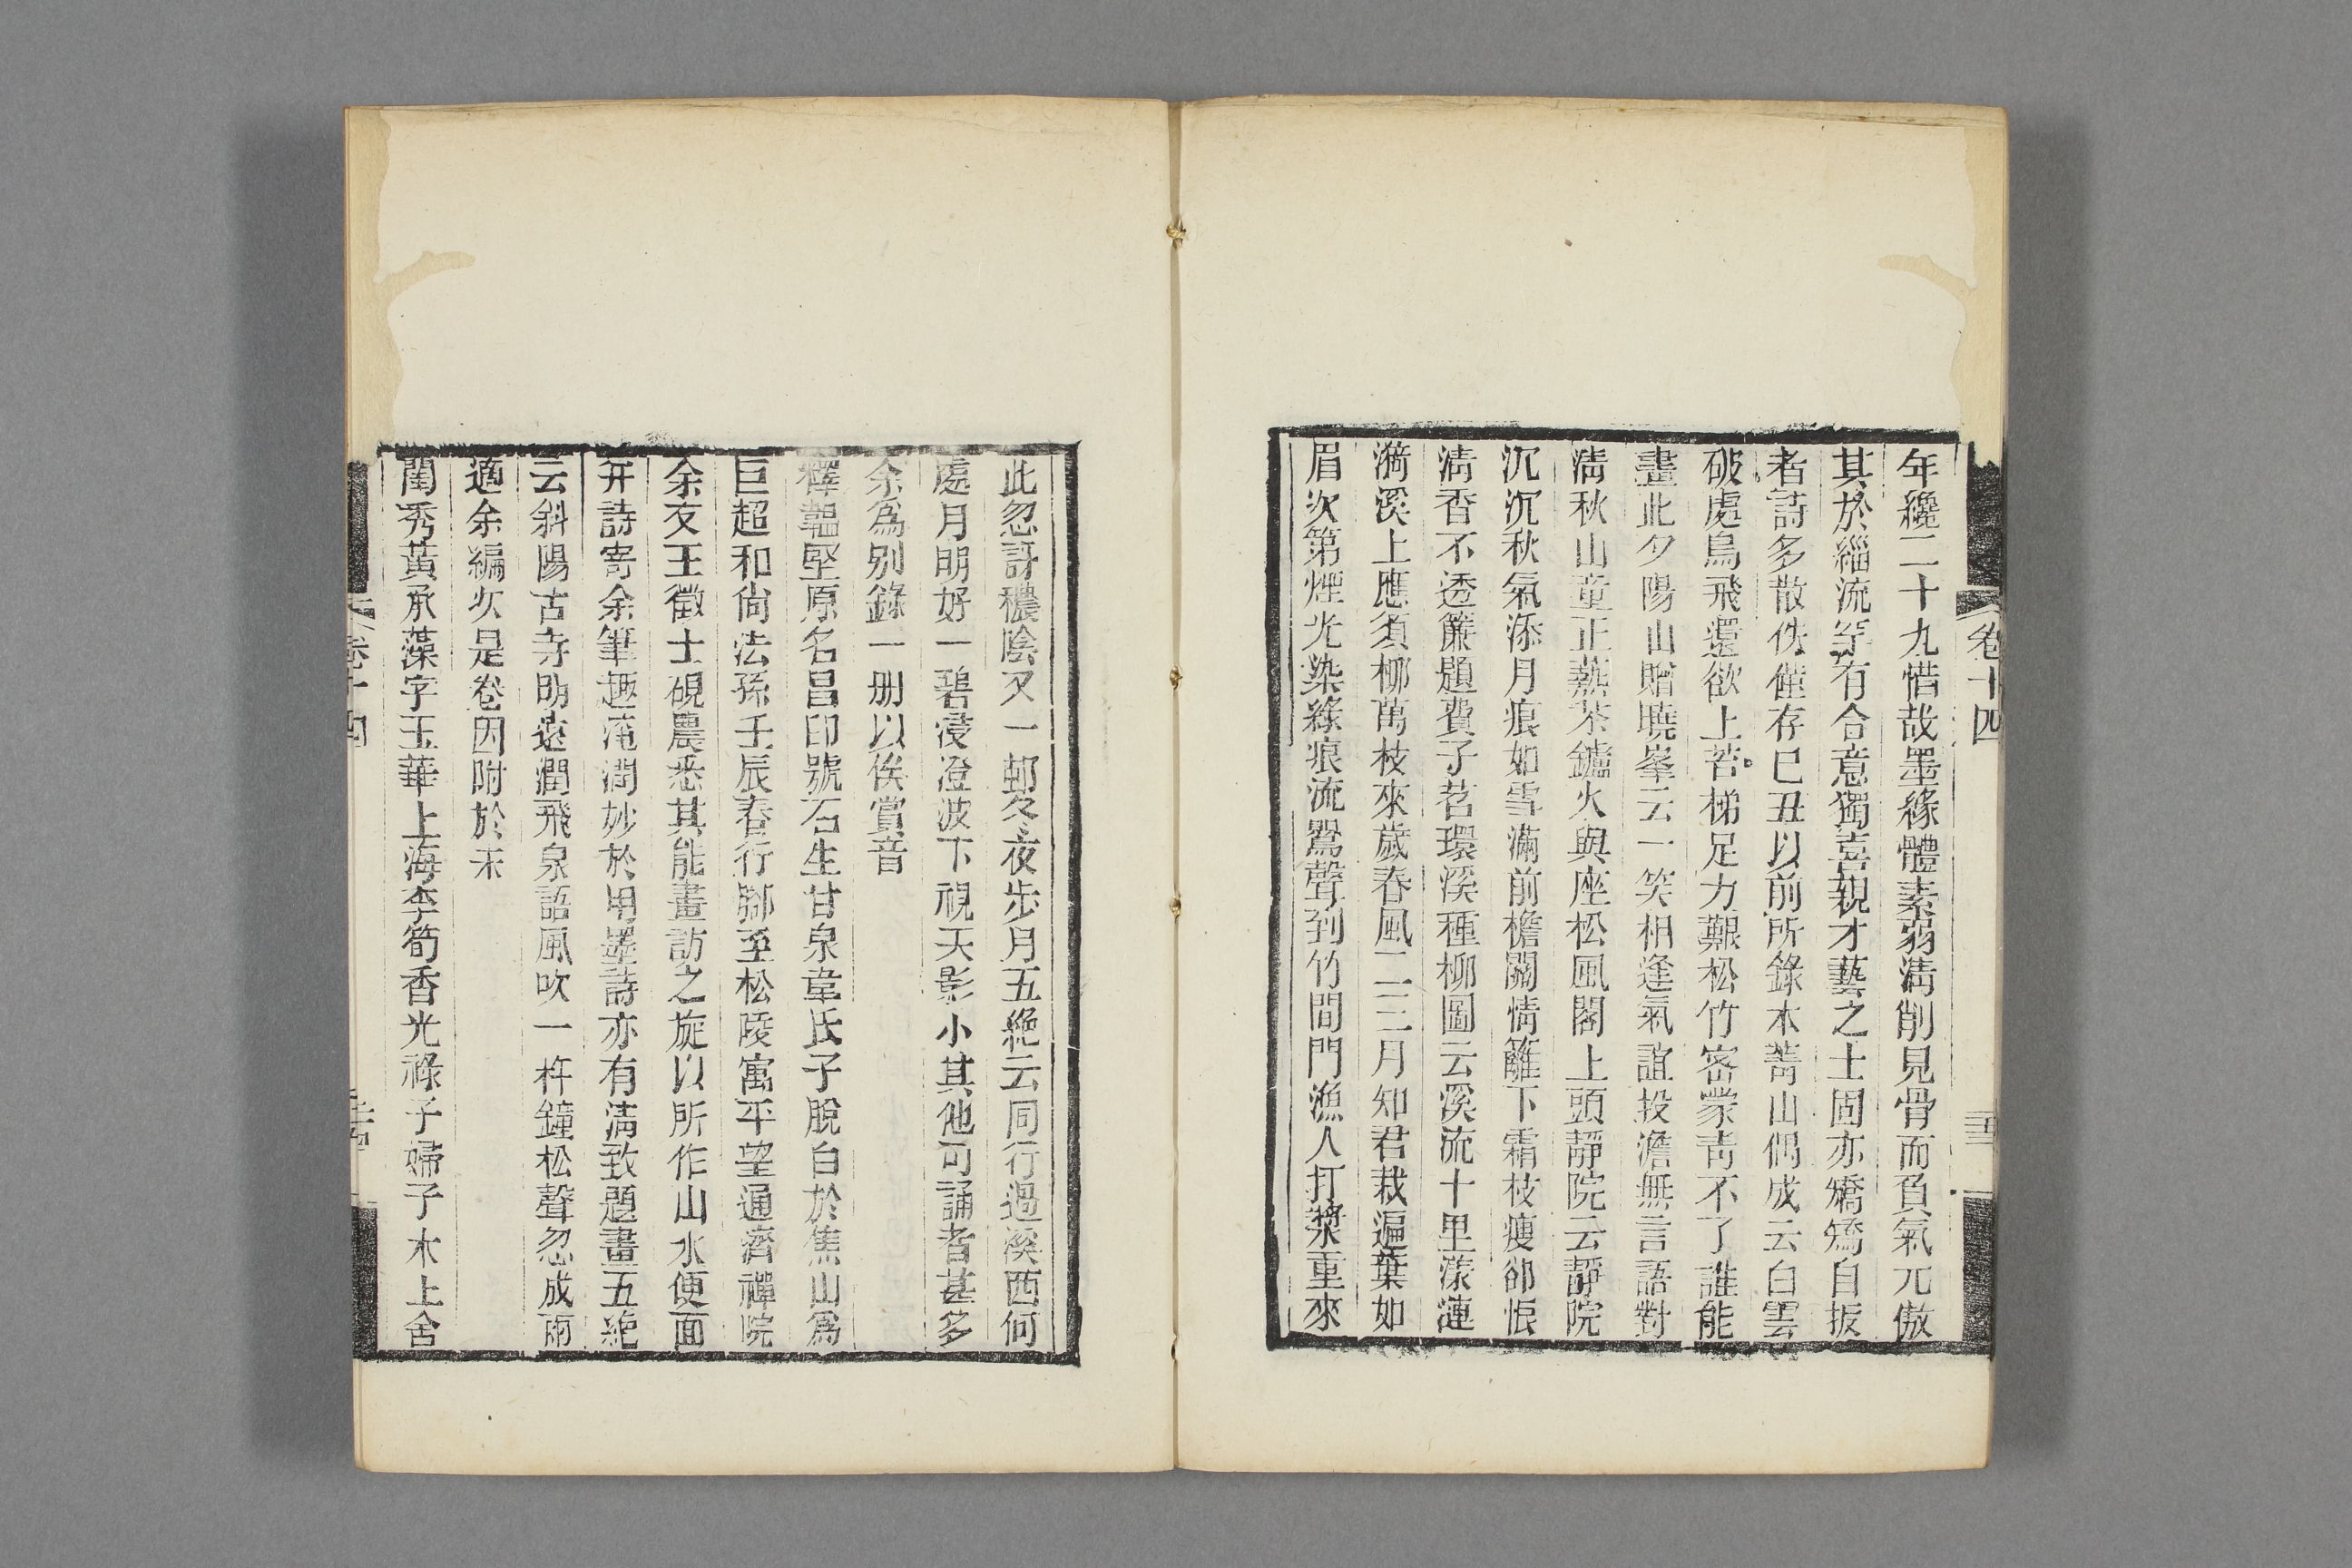 年纔二十九惜哉墨緣體素弱淸削見骨而負氣兀傲
其於緇流等有合意獨喜親才藝之士固亦矯矯自拔
者詩多散佚僅存巳丑以前所錄本菁山偶成云白雲
破處鳥飛還欲上苕梯足力艱松竹密蒙靑不了誰能
畫此夕陽山贈曉峯云一笑相逢氣誼投澹無言語對
淸秋山童正爇茶鑪火與座松風閣上頭靜院云靜院
沉沉秋氣添月痕如雪滿前檐關情籬下霜枝瘦卻恨
淸香不透簾題費子苕環溪種柳圖云溪流十里漾漣
漪溪上應須柳萬枝來歲春風二三月知君栽遍葉如
眉次第煙光染綠痕流鶯聲到竹間門漁人打槳重來
卷十四
此忽訝穠陰又一邨冬夜步月五絶云同行過溪西何
處月明好一碧浸澄波下視天影小其他可誦者甚多
余爲别錄一册以俟賞音
釋韞堅原名昌印號石生甘泉韋氏子脫白於焦山爲
巨超和尙法孫壬辰春行腳至松陵寓平望通濟禪院
余友王徵士硯農悉其能畫訪之旋以所作山水便面
并詩寄余筆趣淹潤妙於用墨詩亦有淸致題畫五絶
云斜陽古寺明遠澗飛泉語風吹一杵鐘松聲忽成雨
適余編次是卷因附於末
閨秀黃承藻字玉華上海李筍香光祿子婦子木上舍
卷十四